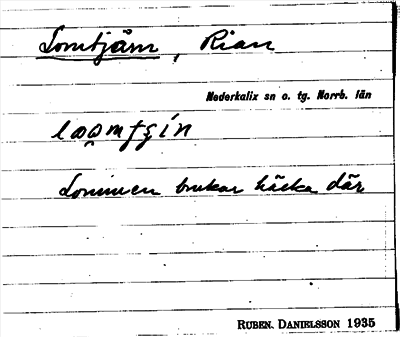 Lomtjärn, Rian
Nederkalix sn o. tg. Norrb. län
Lommen brukar häcka där
RUBEN. DANIELSSON 1935